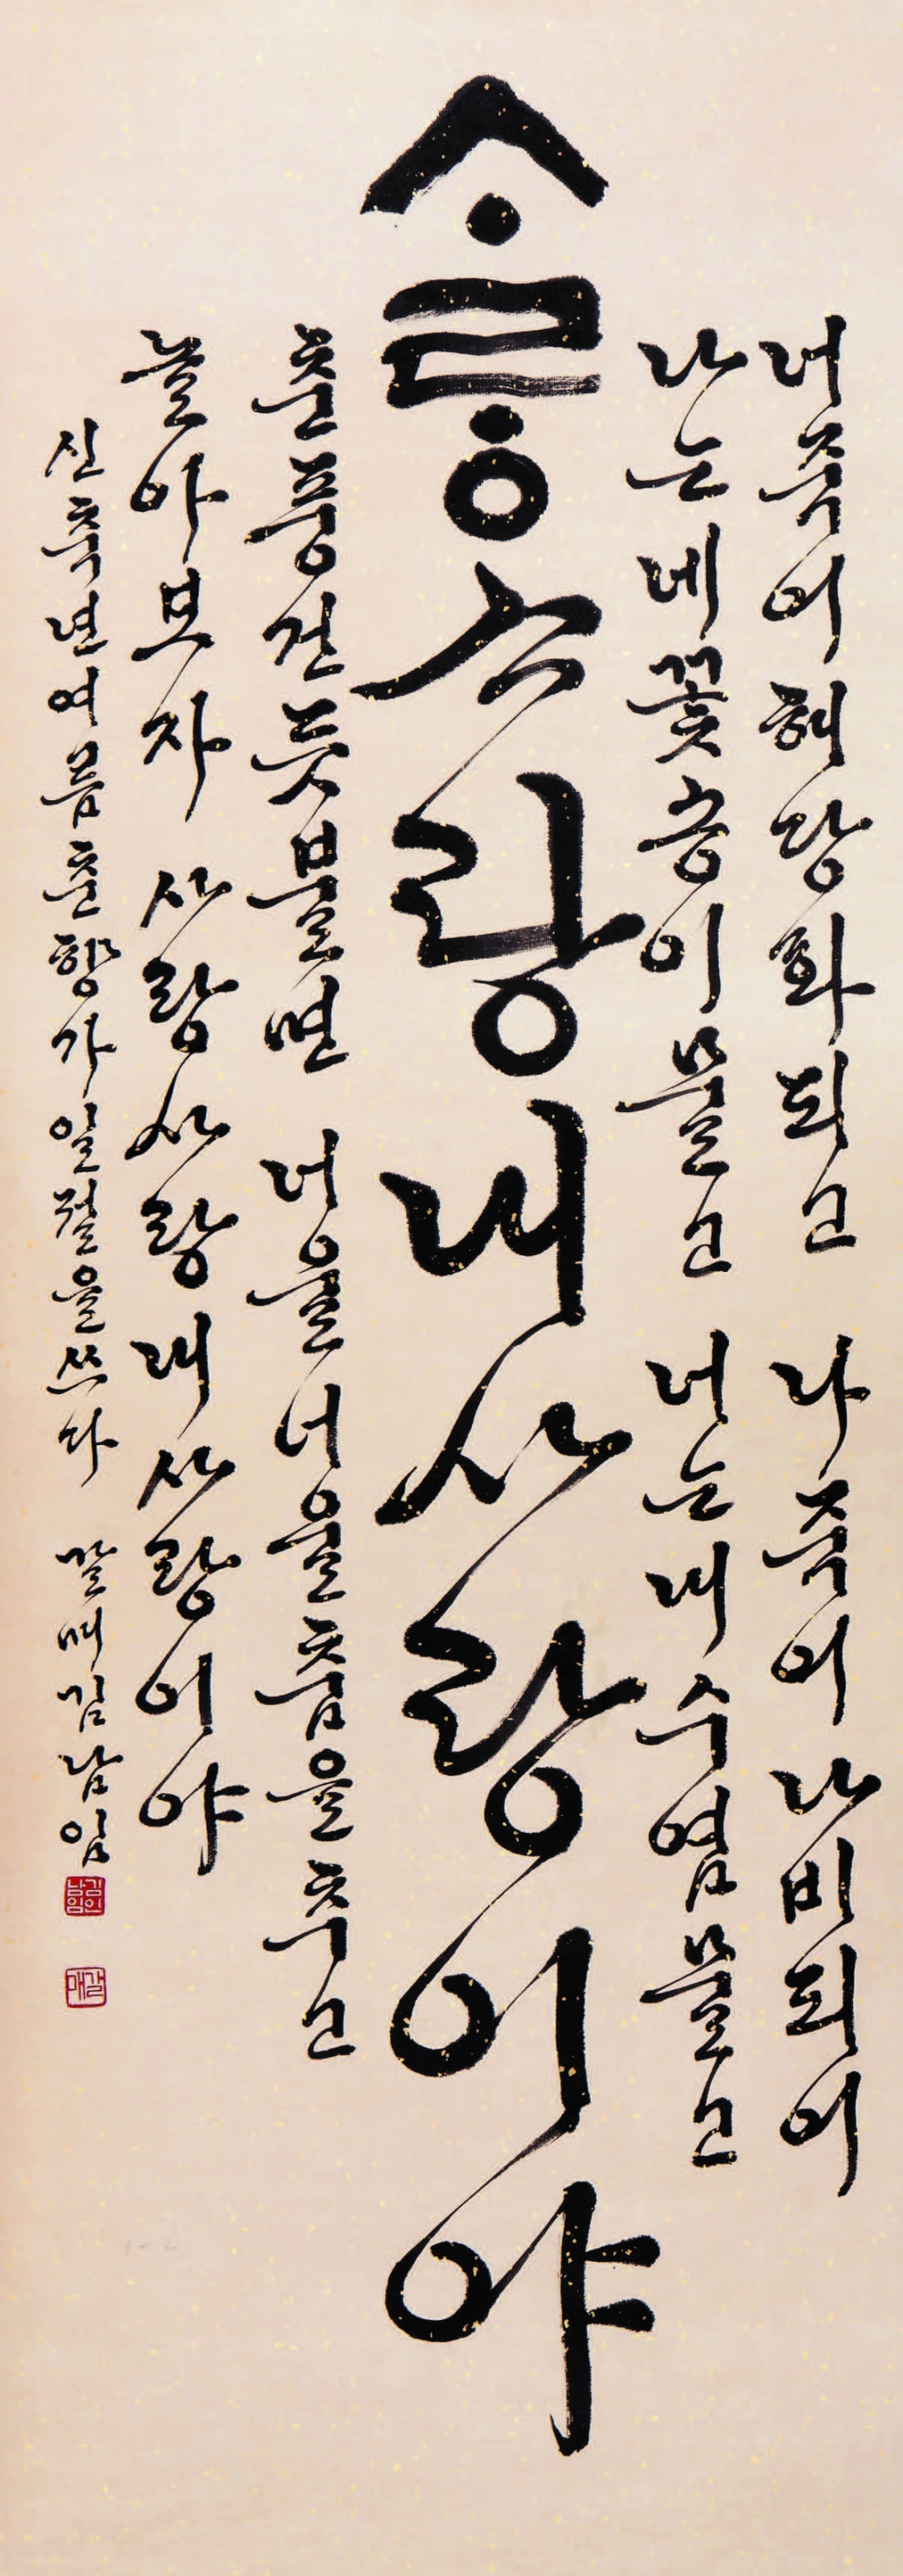 너죽어해당화되고 나죽어나비되어
나는네꽃송이물고 너는내수염물고
ᄉᆞᄅᆞᆼ사랑내사랑이야
춘풍건듯불면 너울너울춤을추고
놀아보자 사랑사랑내사랑이야
신축년여름춘향가일절을쓰다 갈매김남임
김인남임
갈매